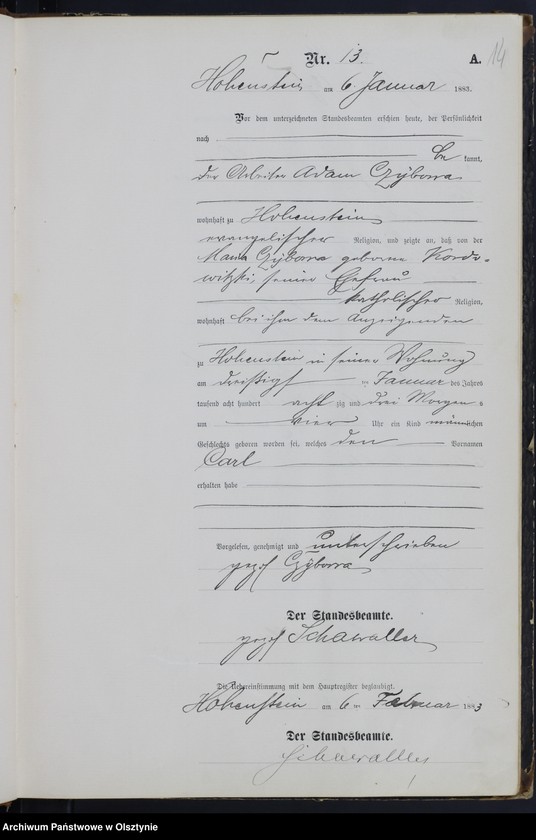 Nr. 13. A. 14
Hohenstein am 6 Januar 1883.
Vor dem unterzeichneten Standesbeamten erschien heute, der Persönlichkeit
nach
be kannt,
der Arbeiter Adam Czyborra
wohnhaft zu Hohenstein
evangelischer Religion, und zeigte an, daß von der
Maria Czyborra geborene Kordo-
witzki, seiner Ehefrau
katholischer Religion,
wohnhaft bei ihm dem Anzeigenden
zu Hohenstein in seiner Wohnung
am Januar des Jahres
tausend acht hundert acht zig und drei Morgen s
um vier Uhr ein Kind männlichen
Geschlechts geboren worden sei, welches den Vornamen
Carl
erhalten habe
Vorgelesen, genehmigt und unterschrieben
gez. Czyborra
Der Standesbeamte.
gez. Schawaller
Die Uebereinstimmung mit dem Hauptregister beglaubigt.
Hohenstein am 6 ten Februar 1883
Der Standesbeamte.
Schawaller
Archiwum Państwowe w Olsztynie